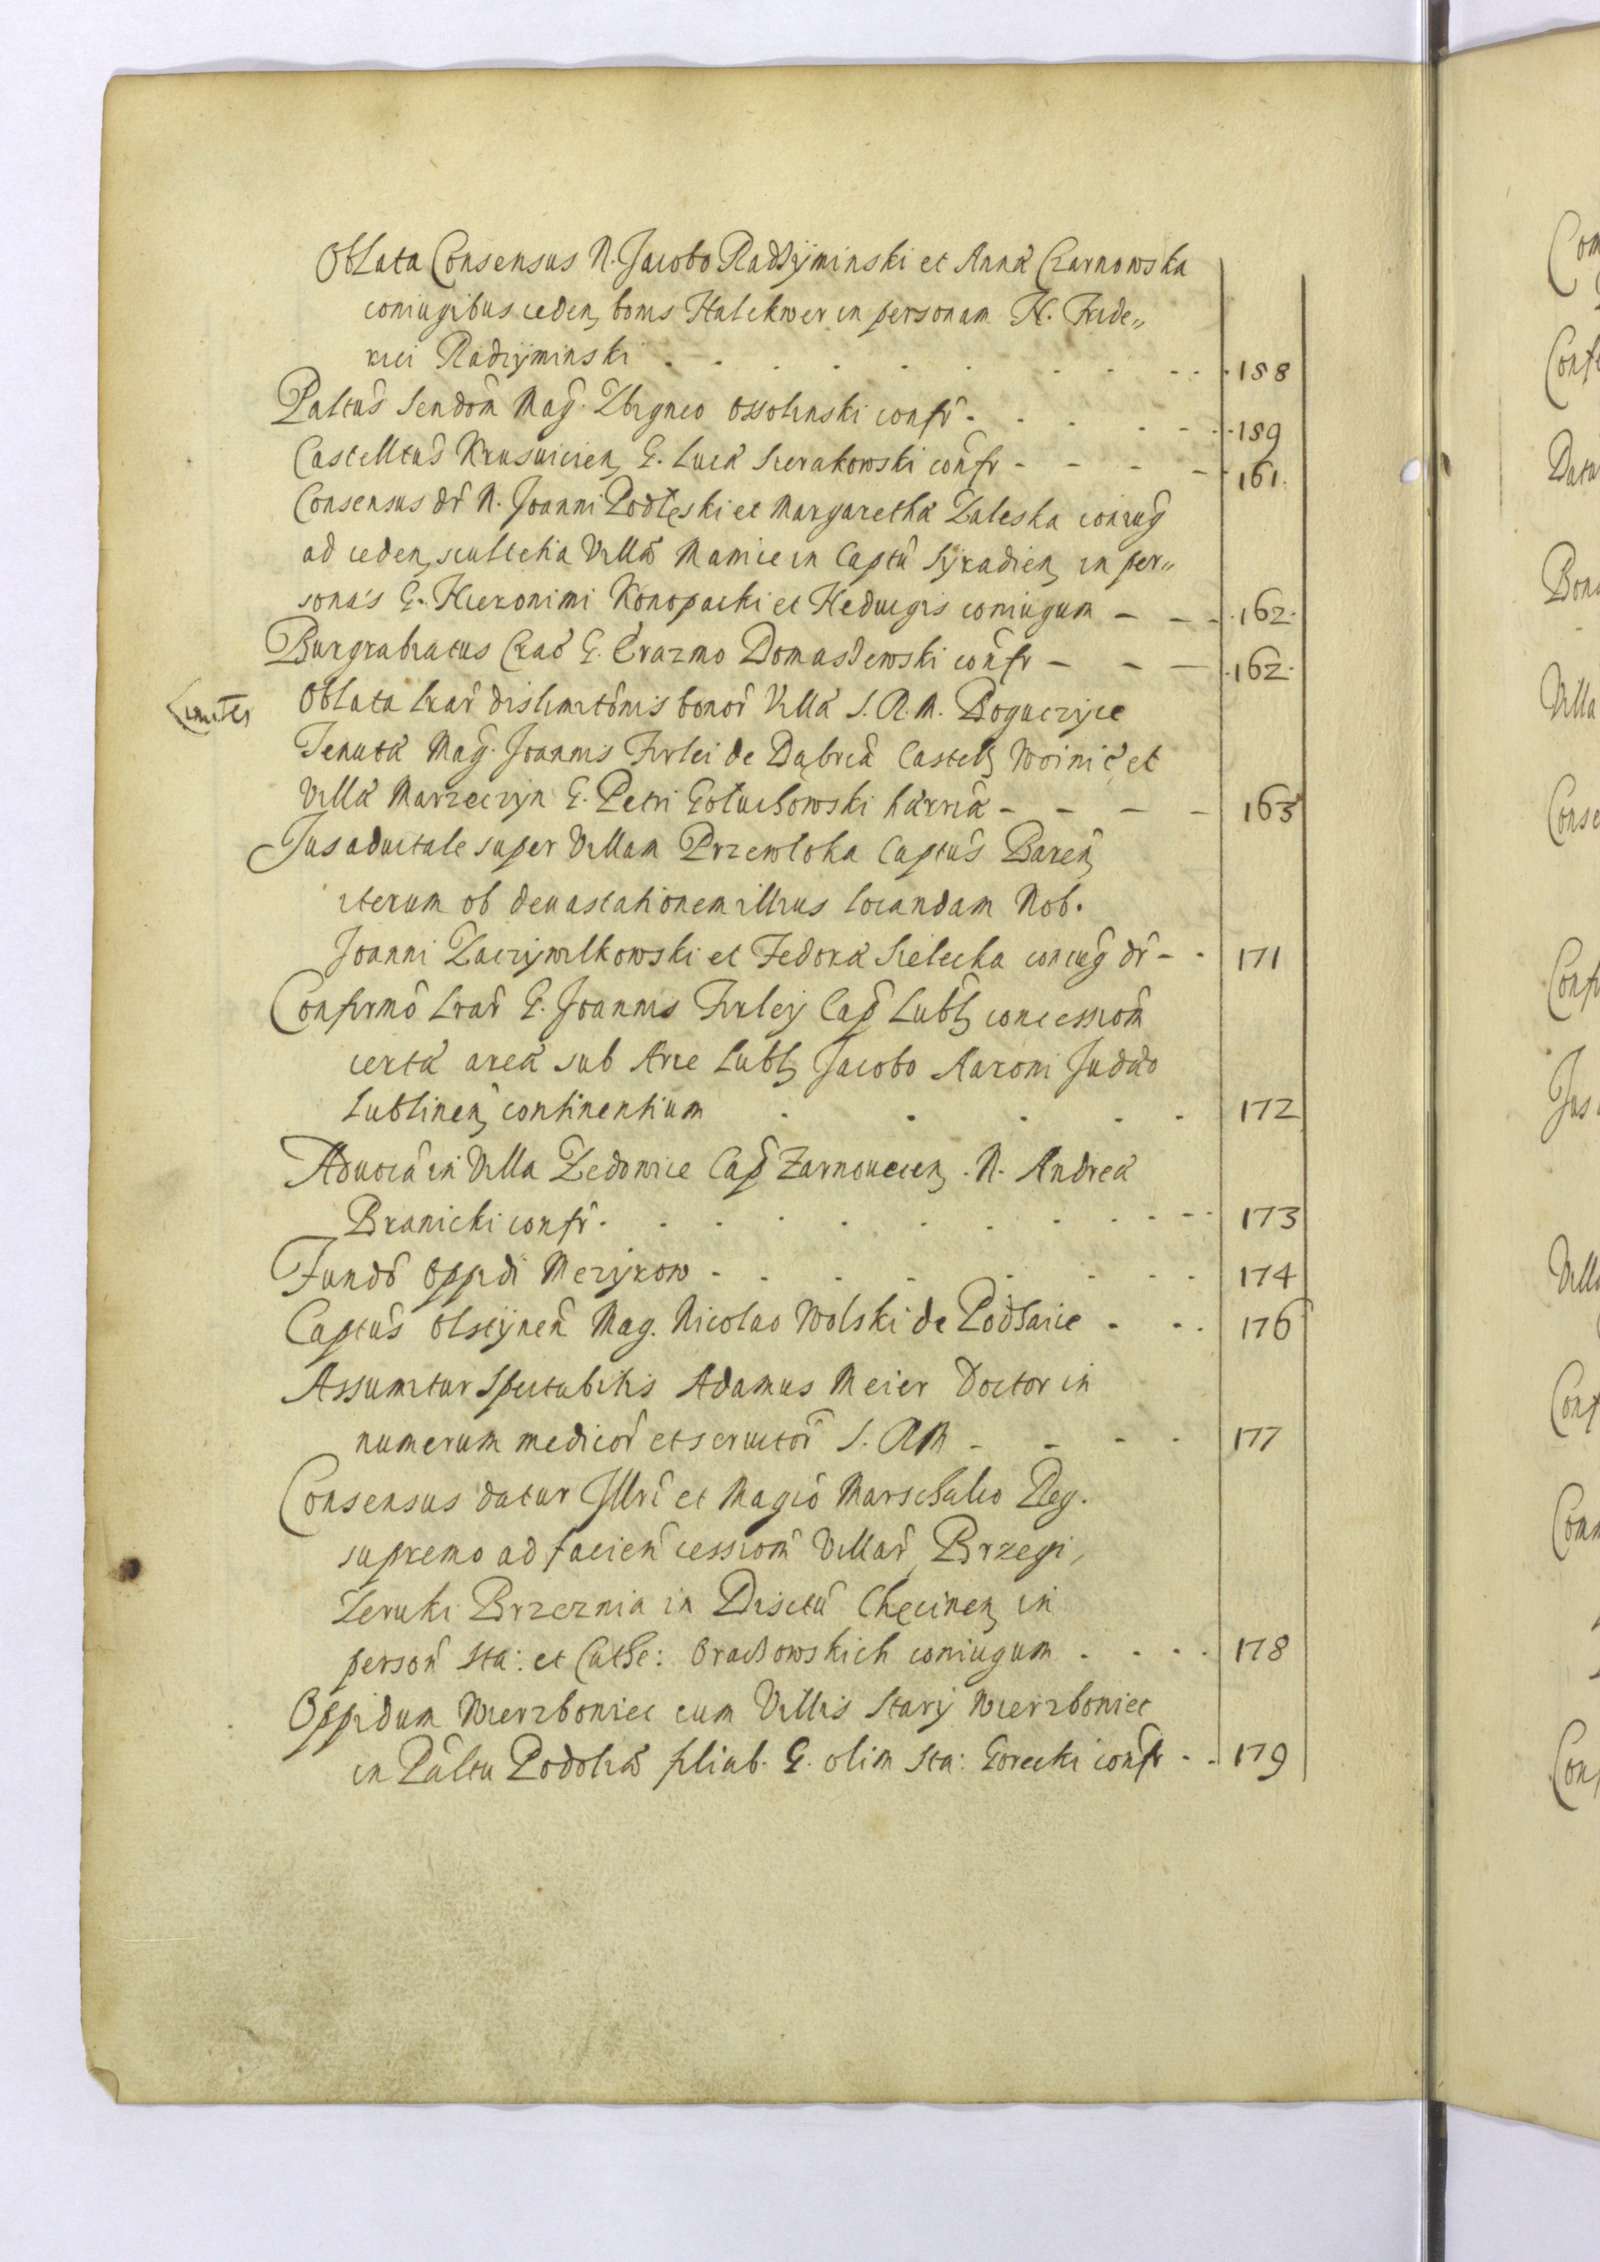 Oblata Consensus N. Jacobo Radzÿminski et Anna Czarnowska
coniugibus ceden, bonis Halekwer in personam N. Fride„
rici Radzÿminski . . . . . . . . . . 158
Paltus Sendom Mag. Zbigneo Ossolinski confr . . . . . 159
Castelltus Kruswicien, G. Luca Sierakowski confr - - - - 161.
Consensus dr N. Joanni Podłęski et Margaretha Zaleska coniug
ad ceden, scultetia Villa Mamice in Captu Sÿradien, in per„
sonas G. Hieronimi Konopacki et Heduigis coniugum - - - 162.
Burgrabiatus Crac G. Erazmo Domaszewski confr - - - 162.
Limites
Oblata lrar dislimitonis bonor Villa S. R. M. Boguczyce
Tenuta Mag. Joannis Firlei de Dąbrca Castell, Woinic et
Villa Marzeczyn G. Petri Gołuchowski härria - - - - 163
Jus aduitale super Villam Przewloka Captus Baren,
iterum ob deuastationem illius locandam Nob.
Joanni Zaczywilkowski et Fedora Sielecka coniug dr - - 171
Confirmo lrar G. Joannis Firleÿ Cap Lubl, concession
certa area sub Arce Lubl, Jacobo Aaroni Judao
Lublinen, continentium . . . . . 172
Aduoca in Villa Zedowice Cap Zarnouecien, . N. Andrea
Branicki confr . . . . . . . . . . 173
Fundo Oppidi Mezyrow - . . . . . . . . 174
Captus Olstÿnen Mag. Nicolao Wolski de Podhaice . . . 176
Assumitur Spectabilis Adamus Meier Doctor in
numerum medicor et seruitor S. R M - - - - 177
Consensus datur Illri et Magco Marschalco Reg.
supremo ad facien cession Villar Brzegi,
Zeruki Brzeznia in Disctu Chęcinen, in
person Sta: et Cathe: Orachowskich coniugum . . . . 178
Oppidum Wierzboniec cum Villis Starÿ Wierzboniec
in Paltu Podolia filiab. G. olim Sta: Gorecki confr . . 179